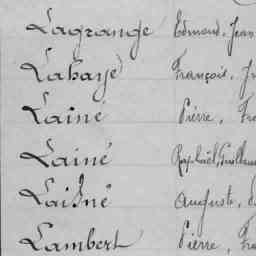 Lagrange Edmond, Jean
Lahaye François, Jn
Lainé Pierre, Fra
Lainé Raphaël, Guillaume
Laisné Auguste,
Lambert Pierre, Fra